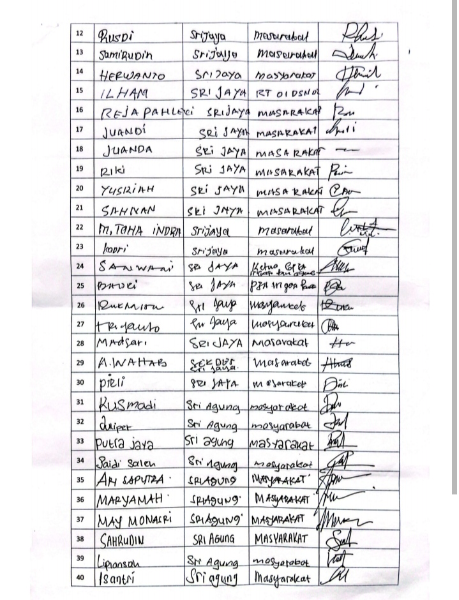 12 RUSDI Srijaya masarakat
13 Samirudin Srijaya masarakat
14 HERWANTO SriJAYA masyarakat
15 ILHAM SRI JAYA RT 01 DSN
16 REJA PAHLEVI SRIJAYA MASARAKAT
17 JUANDI SRI JAYA MASARAKAT
18 JUANDA SRI JAYA MASARAKAT
19 RIKI SRI JAYA MASARAKAT
20 YUSRIAH SRI JAYA MASARAKAT
21 SAHNAN SRI JAYA MASARAKAT
22 M. TOHA INDRA Srijaya masarakat
23 Srijaya masarakat
24 SANWANI SRI JAYA Ketua
25 SRI JAYA
26 Sri Jaya masyarakat
27 Triyanto Sri Jaya masyarakat
28 Madsari SRIJAYA Masarakat
29 A. WAHAB SEKDES Srijaya Masarakat
30 SRI JAYA masarakat
31 Kusmadi Sri Agung masyarakat
32 Sri Agung masyarakat
33 putra jaya Sri agung masyarakat
34 Saidi Saleh Sri Agung masyarakat
35 ARI SAPUTRA SRIAGUNG MASYARAKAT
36 MARYAMAH SRIAGUNG MASYARAKAT
37 MAY MONASRI SRIAGUNG MASYARAKAT
38 SAHRUDIN SRI AGUNG MASYARAKAT
39 Sri Agung masyarakat
40 Isantri Sri agung Masyarakat